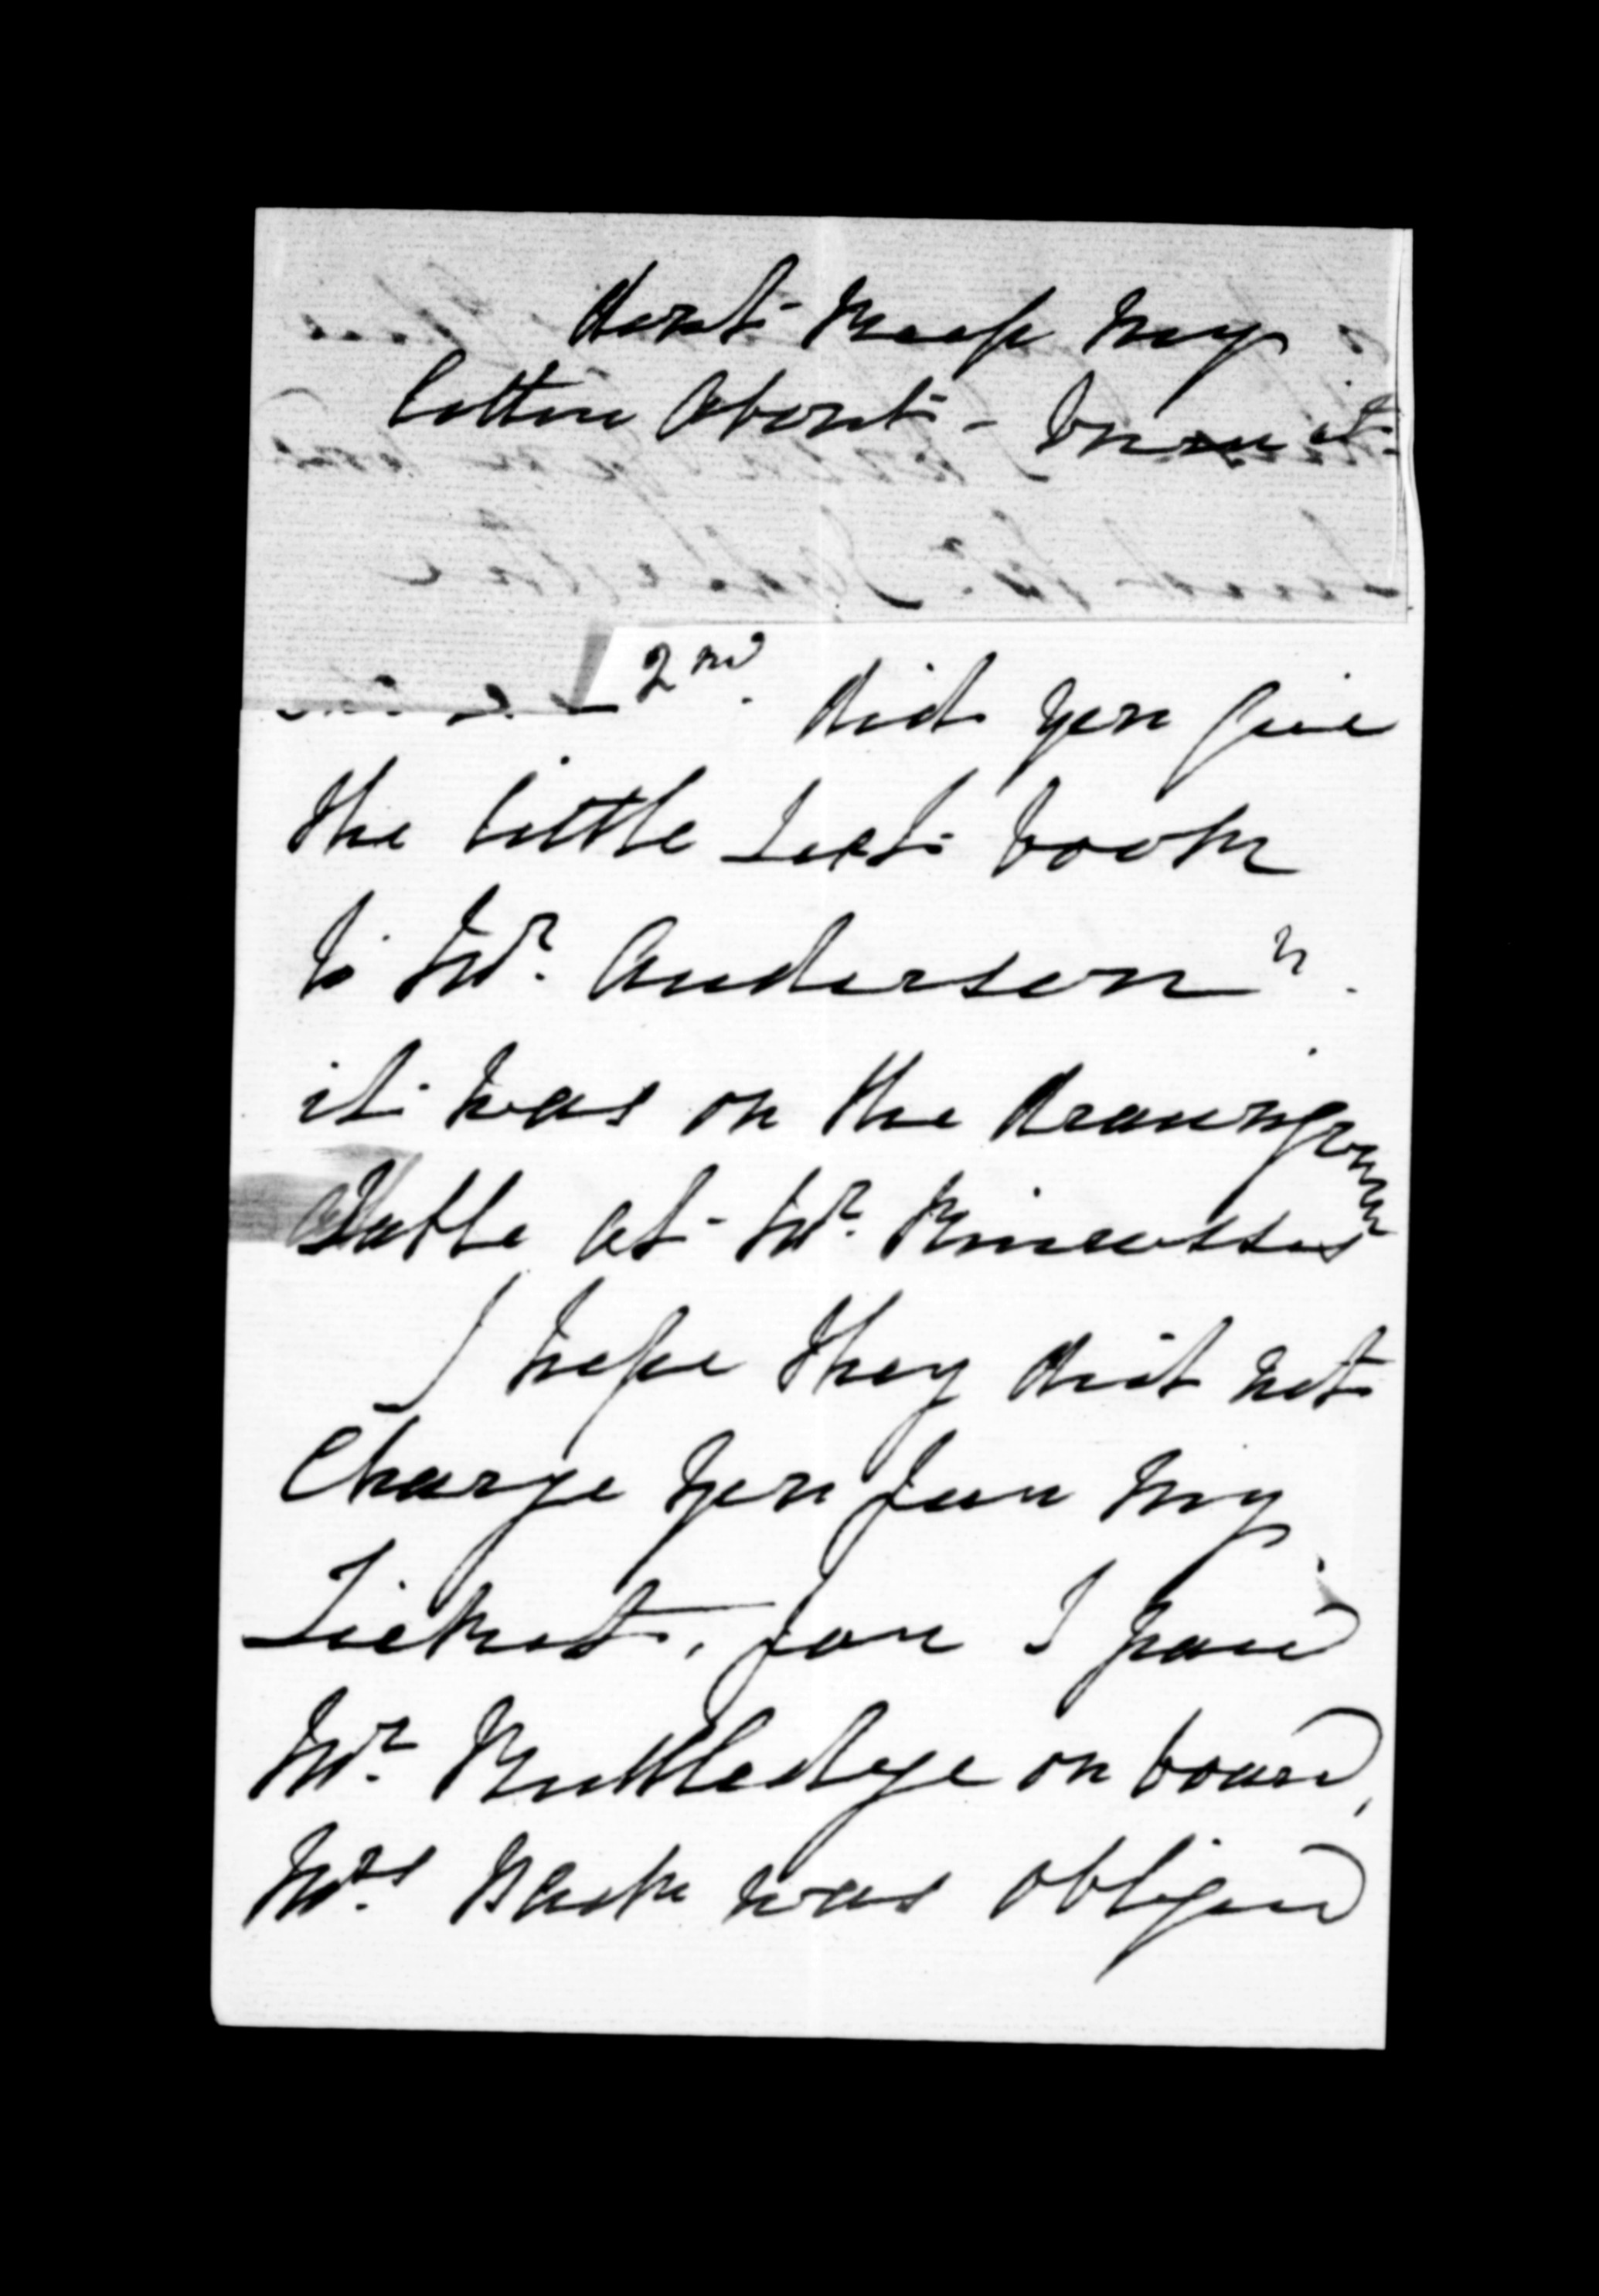 dont keep my
letter about - burn it
2nd. did you give
the little text book
to Mr. Anderson?
it was on the drawingroom
table at Mr. Kinrosses
I hope they did not
Charge you for my
Ticket, for I paid
Mr. Ruttledge on board,
Mrs. was obliged